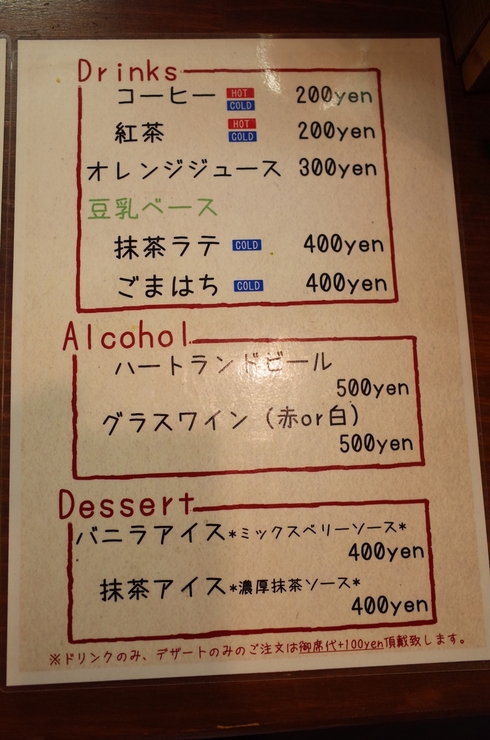 Drinks
コーヒー HOT COLD 200yen
紅茶 HOT COLD 200yen
オレンジジュース 300yen
豆乳ベース
抹茶ラテ COLD 400yen
ごまはち COLD 400yen
Alcohol
ハートランドビール
500yen
グラスワイン（赤or白）
500yen
Dessert
バニラアイス*ミックスベリーソース*
400yen
抹茶アイス*濃厚抹茶ソース*
400yen
※ドリンクのみ、デザートのみのご注文は御席代+100yen頂戴致します。